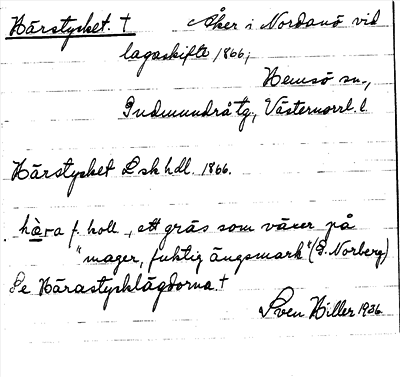 Härstycket. † Åker i Nordanö vid
lagaskifte 1866;
Hemsö sn.,
Gudmundrå tg., Västernorrl. l.
Härstycket Lskhdl. 1866.
hä̀ra f. koll., ett gräs som växer på
"mager, fuktig ängsmark" (G. Norberg)
Se Härastycklägdorna. †
Sven Hiller 1936